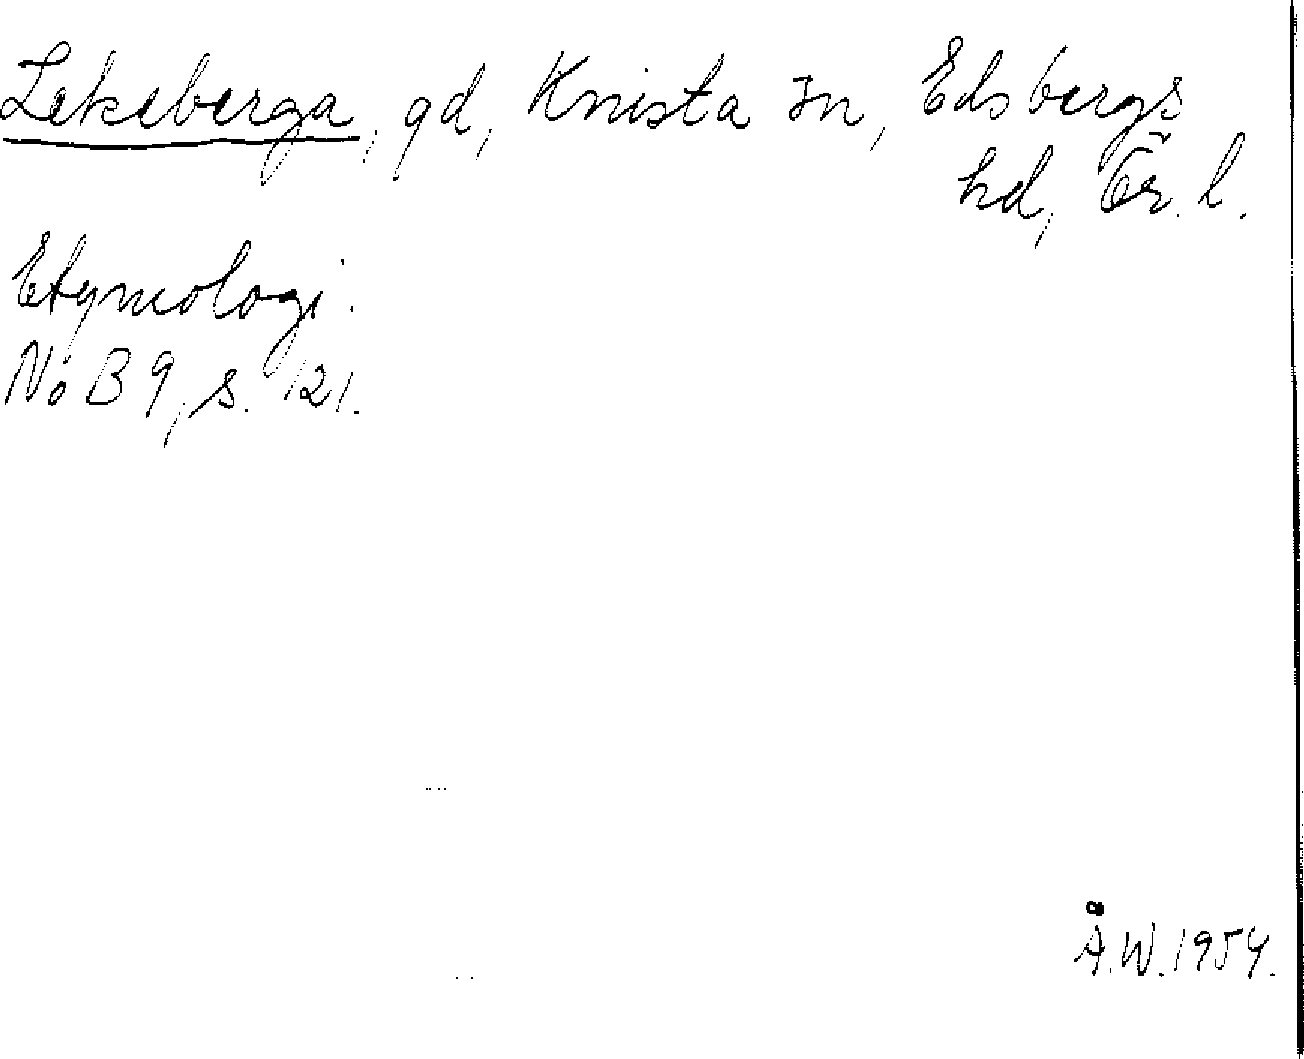 Lekeberga, gd, Knista sn, Edsbergs
hd, Ör. l.
Etymologi.
NoB 9, s. 121.
Å.W. 1954.